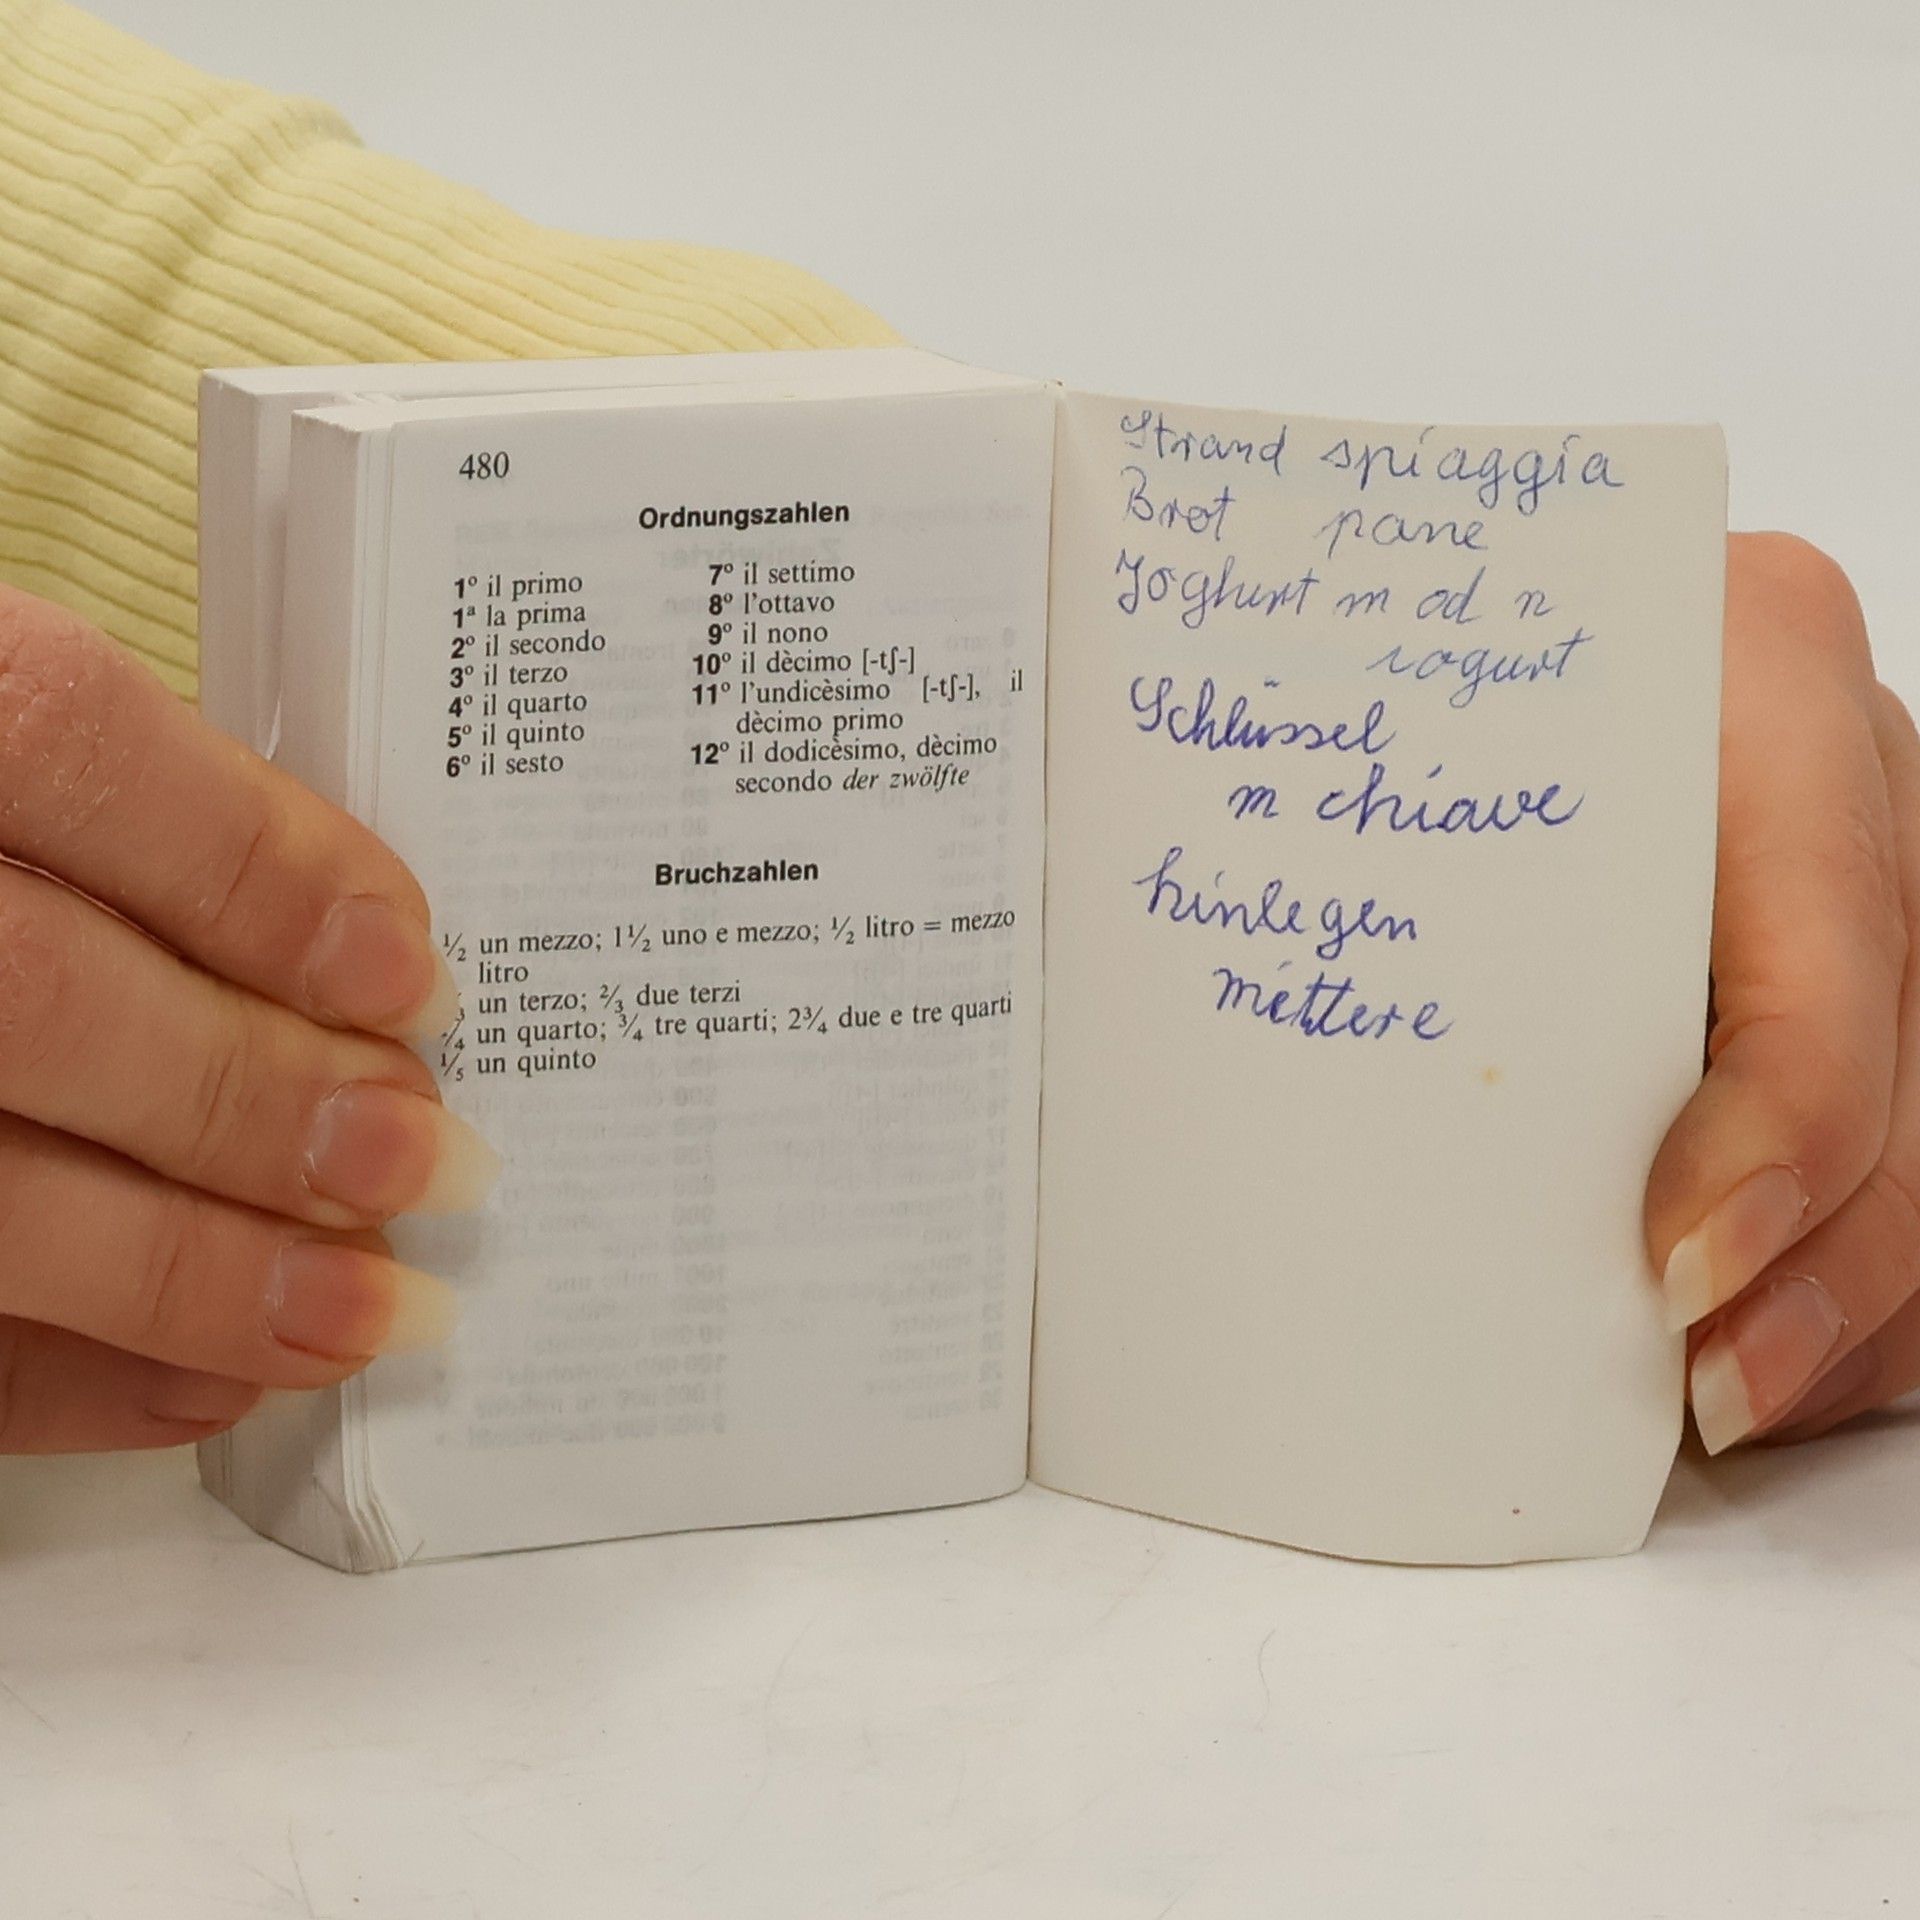 480
Ordnungszahlen
1º il primo
1ª la prima
2º il secondo
3º il terzo
4º il quarto
5º il quinto
6º il sesto
7º il settimo
8º l'ottavo
9º il nono
10º il dècimo [-tʃ-]
11º l'undicèsimo [-tʃ-], il
dècimo primo
12º il dodicèsimo, dècimo
secondo der zwölfte
Bruchzahlen
½ un mezzo; 1½ uno e mezzo; ½ litro = mezzo
litro
un terzo; ⅔ due terzi
un quarto; ¾ tre quarti; 2¾ due e tre quarti
⅕ un quinto
Strand spiaggia
Brot pane
Joghurt m od n
iogurt
Schlüssel
m chiave
hinlegen
méttere